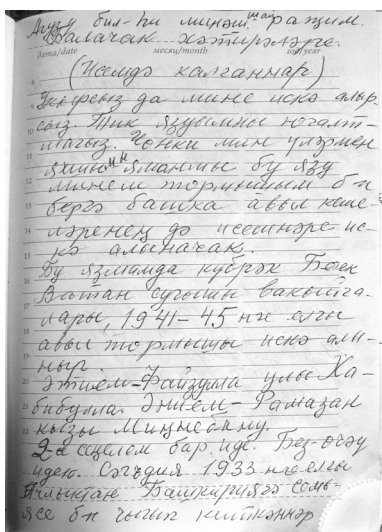 бил-ни минәш ша рашим.
Балачак хәтирәләре.
дата/date месяц/month год/year
(Исемдә калганнар)
Укырсыз да мине искә алыр
сыз. Тик язуымны югалт
магыз. Чөнки мин үләрмен
яхшымы яманмы бу язу
минем тормышым б/н
бергә башка авыл кеше-
ләренең дә исемнәре ис-
кә алыначак.
Бу язмамда күбрәк Бөек
Ватан сугышы вакыйга-
лары, 1941-45 нче елгы
авыл тормышы искә алы-
ныр.
Әтием-Файзулла улы Ха-
бибулла. Әнием- Рамазан
кызы Миңнебану.
2 сеңелем бар иде. Без-өчәү
идек. Сәгъдия 1933 нче елгы
Ачлыктан Башкириягә семь-
ясе б/н чыгып киткәннәр